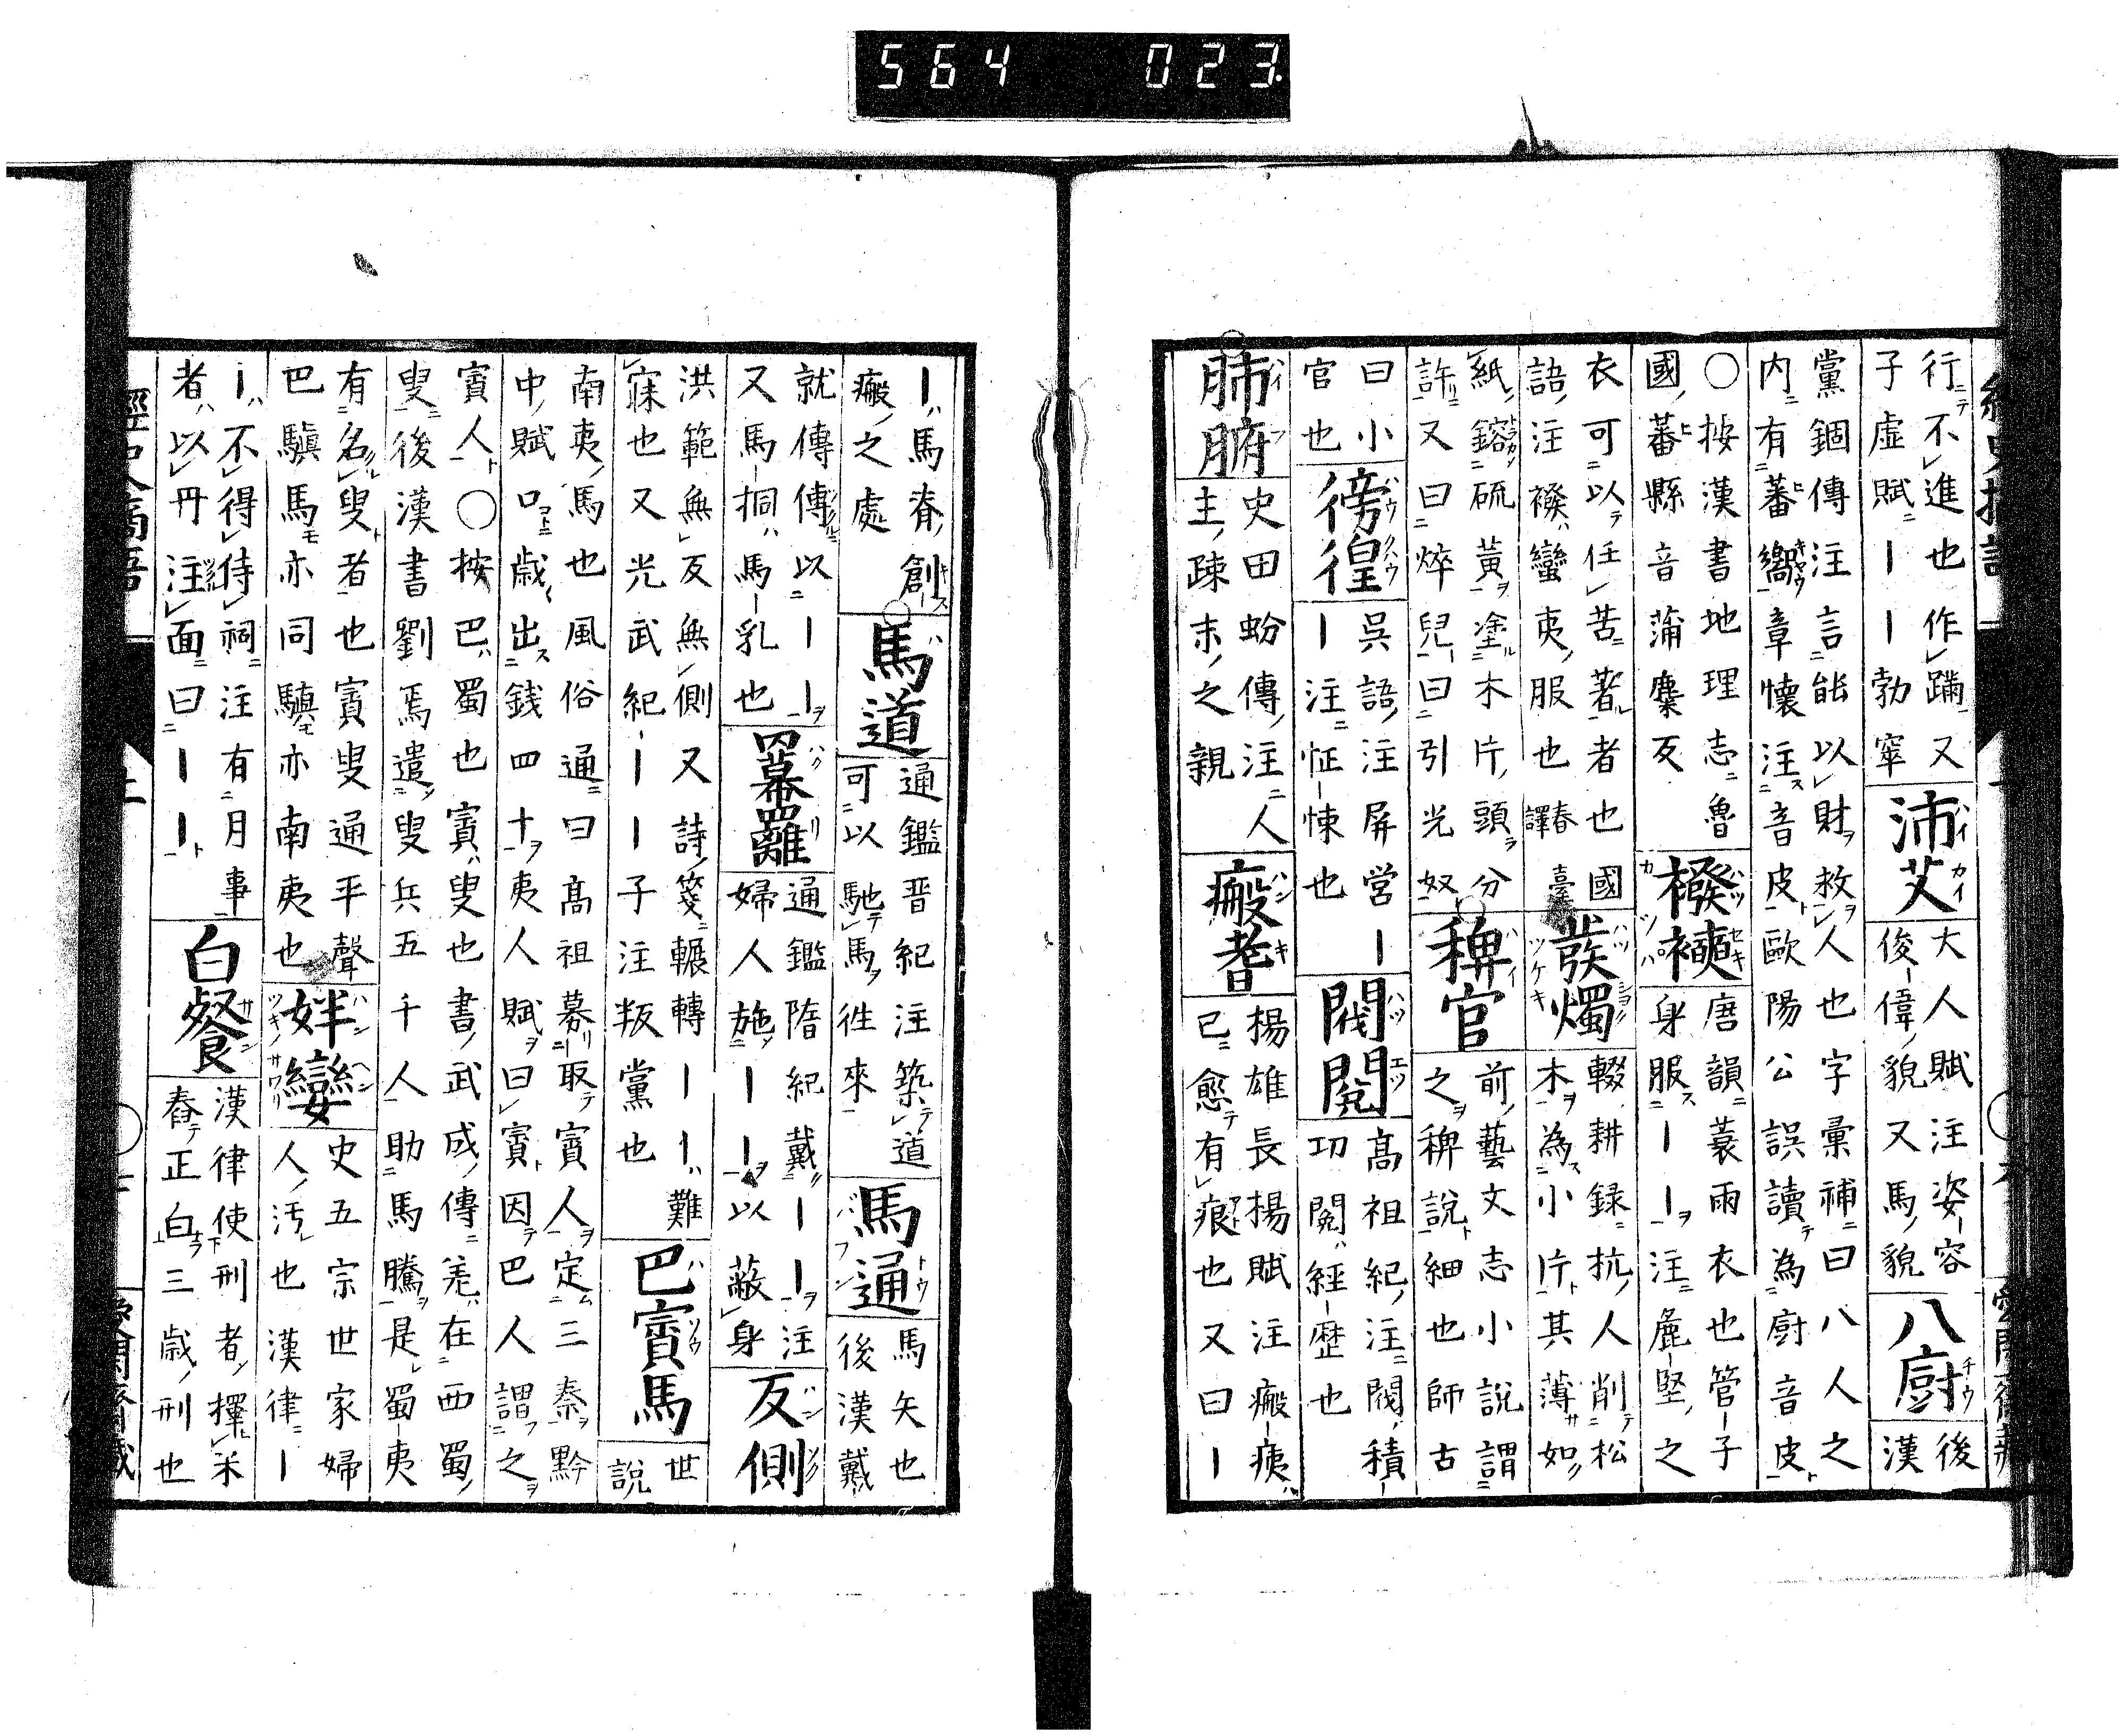 564 023
行不進也作蹣又
子虛賦丨丨勃窣
沛艾
大人賦注姿容
俊偉貌又馬貌
八廚
後
漢
黨錮傳注言能以財救人也字彙補曰八人之
内有蕃嚮章懷注音皮歐陽公誤讀為廚音皮
○按漢書地理志魯
國蕃縣音蒲麋反
襏襫
唐韻蓑雨衣也管子
身服丨丨注麁堅之
衣可以任苦著者也國
語注襏蠻夷服也
春臺
譯
蕟燭
輟耕録抗人削松
木為小片其薄如
紙鎔硫黃塗木片頭分
許又曰焠兒曰引光奴
稗官
前藝文志小說謂
之稗說細也師古
曰小
官也
徬徨
吳語注屏營丨
丨注怔悚也
閥閱
高祖紀注閥積
功閱經歷也
肺腑
史田蚡傳注人
主疎末之親
瘢耆
楊雄長楊賦注瘢痍
已愈有痕也又曰丨
丨馬脊創
瘢之處
馬道
通鑑晋紀注築道
可以馳馬往來
馬通
馬矢也
後漢戴
就傳傳以丨丨
又馬挏馬乳也
羃䍦
通鑑隋紀戴丨丨注
婦人施丨丨以蔽身
反側
洪範無反無側又詩箋輾轉丨丨難
寐也又光武紀丨丨子注叛黨也
巴賨馬
世
說
南夷馬也風俗通曰高祖募取賨人定三秦黔
中賦口歳出錢四十夷人賦曰賨因巴人謂之
賨人○按巴蜀也賨叟也書武成傳羌在西蜀
叟後漢書劉焉遣叟兵五千人助馬騰是蜀夷
有名叟者也賨叟通平聲
巴騹馬亦同騹亦南夷也
姅孌
史五宗世家婦
人汚也漢律丨
丨不得侍祠注有月事
者以丹注面曰丨丨
白粲
漢律使刑者擇米
舂正白三歳刑也